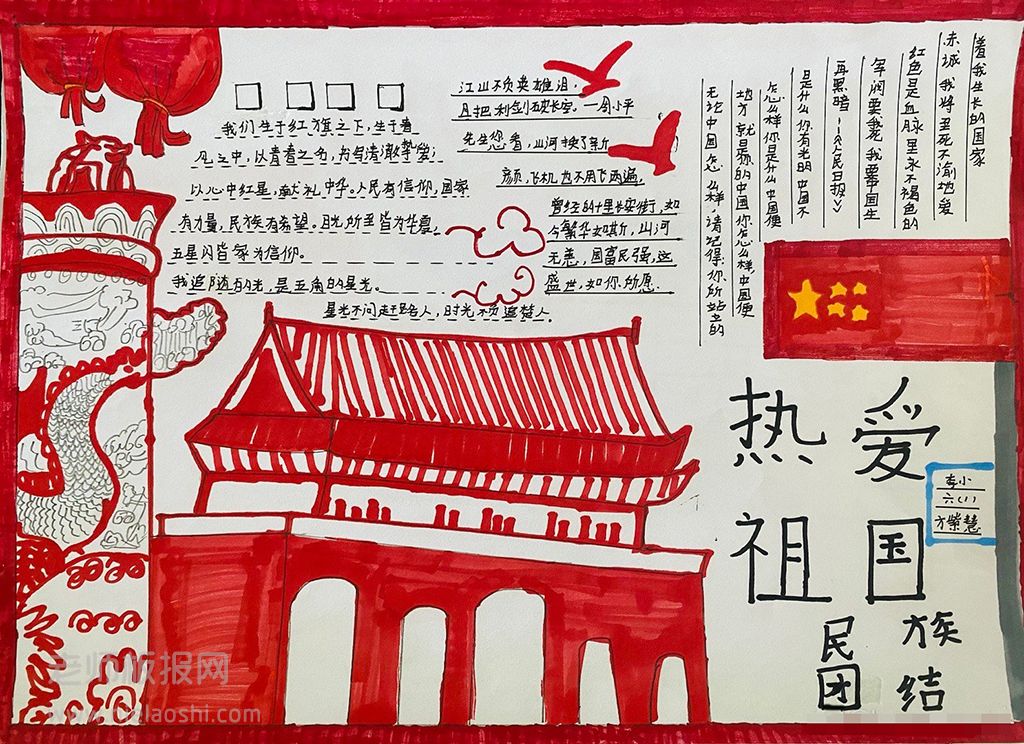 我们生于红旗之下,生于春
风之中,以青春之名,书写清澈挚爱;
以心中红星,献礼中华。人民有信仰,国家
有力量,民族有希望。目光所至皆为华夏,
五星闪皆家为信仰。
我追随的光,是五角的星光。
星光不问赶路人,时光不负追梦人.
江山不负英雄泪,
且把利剑破长空。一周小平
先生您看,山河换了新
颜,飞机也不用飞两遍,
曾经的十里长安街,如
今繁华如斯,山河
无恙,国富民强,这
盛世,如你所愿.
无论中国怎么样 请记得:你所站立的
地方 就是你的中国 你怎么样 中国便
怎么样 你是什么 中国便
是什么 你有光明 中国不
再黑暗--《人民日报》
军阀要我死 我要中国生
红色是血脉里永不褪色的
赤诚 我将至死不渝地爱
着我生长的国家
热爱
祖国
民族
团结
李小
六(1)
方紫慧
老师板报网
www.bzlaoshi.com